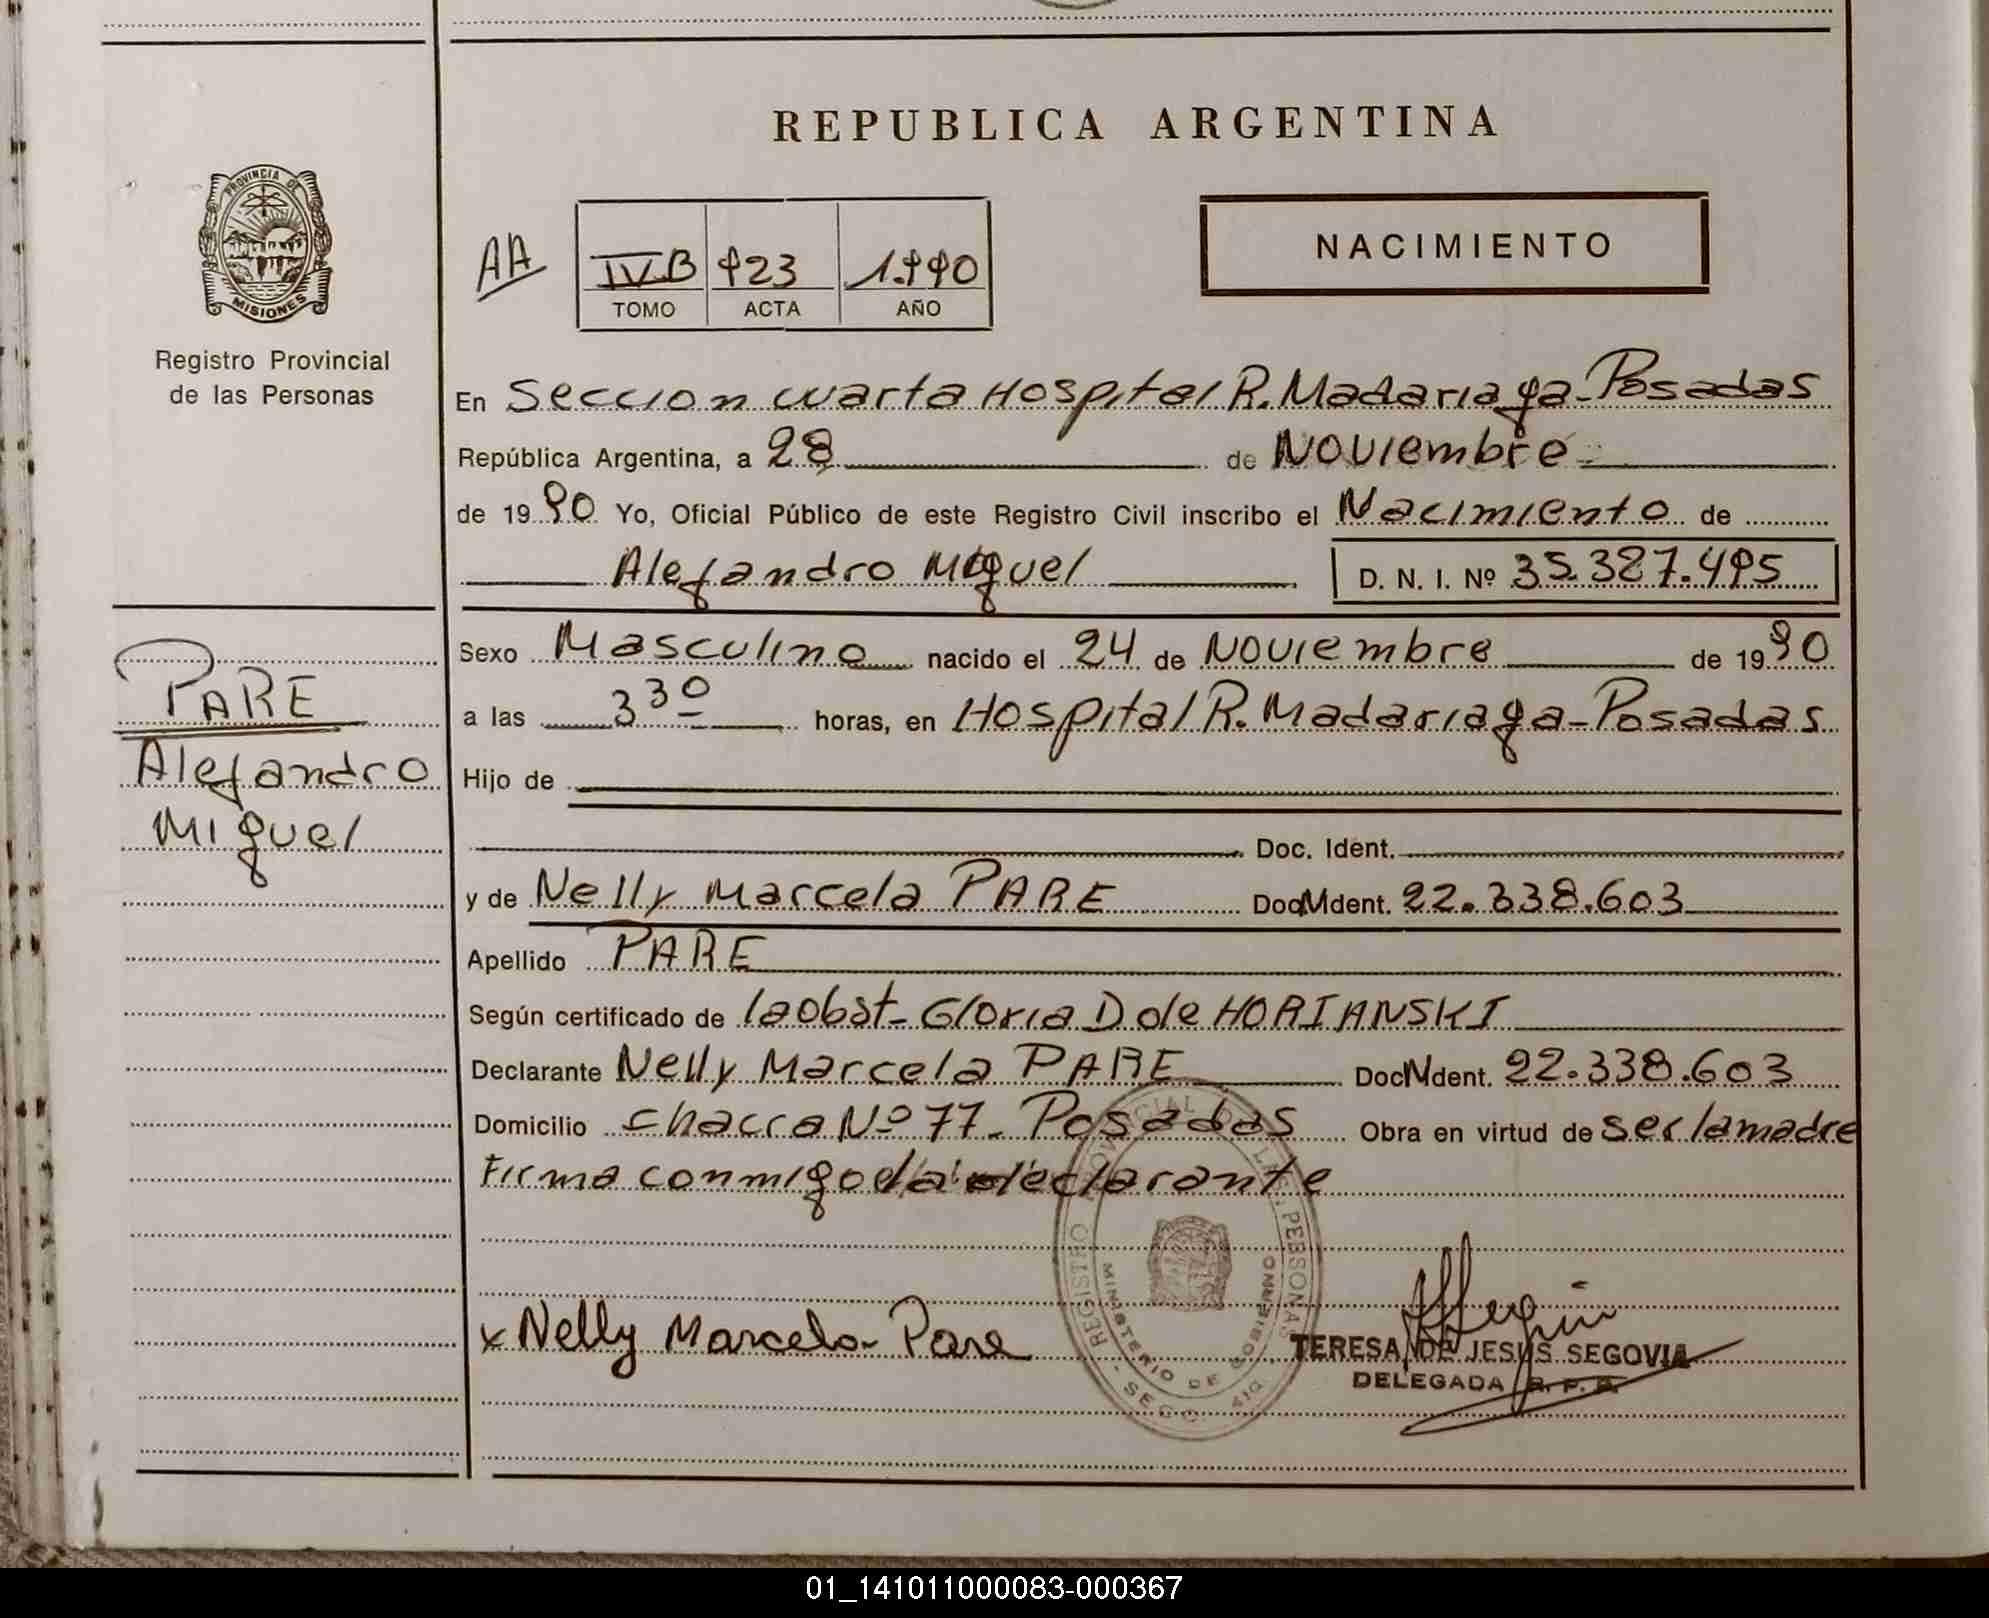 REPUBLICA ARGENTINA
PROVINCIA DE
MISIONES
Registro Provincial
de las Personas
AA
IV.B 923 1.990
TOMO ACTA AÑO
NACIMIENTO
En Seccion cuarta Hospital R. Madariaga - Posadas
República Argentina, a 28 de Noviembre
de 1990 Yo, Oficial Público de este Registro Civil inscribo el Nacimiento de
Alejandro Miguel D. N. I. Nº 35.327.495
Sexo Masculino nacido el 24 de Noviembre de 1990
a las 3 30 horas, en Hospital R. Madariaga - Posadas
Hijo de
Doc. Ident.
y de Nelly Marcela PARE Doc Ident. 22.338.603
Apellido PARE
Según certificado de la obst - Gloria D de HORIANSKI
Declarante Nelly Marcela PARE Doc Ident. 22.338.603
Domicilio chacra Nº 77 - Posadas Obra en virtud de ser la madre
Firma conmigo la declarante
PARE
Alejandro
Miguel
x Nelly Marcela Pare
REGISTRO PROVINCIAL DE LAS PERSONAS
MINISTERIO DE GOBIERNO
TERESA DE JESUS SEGOVIA
DELEGADA R. P. P.
01_141011000083-000367